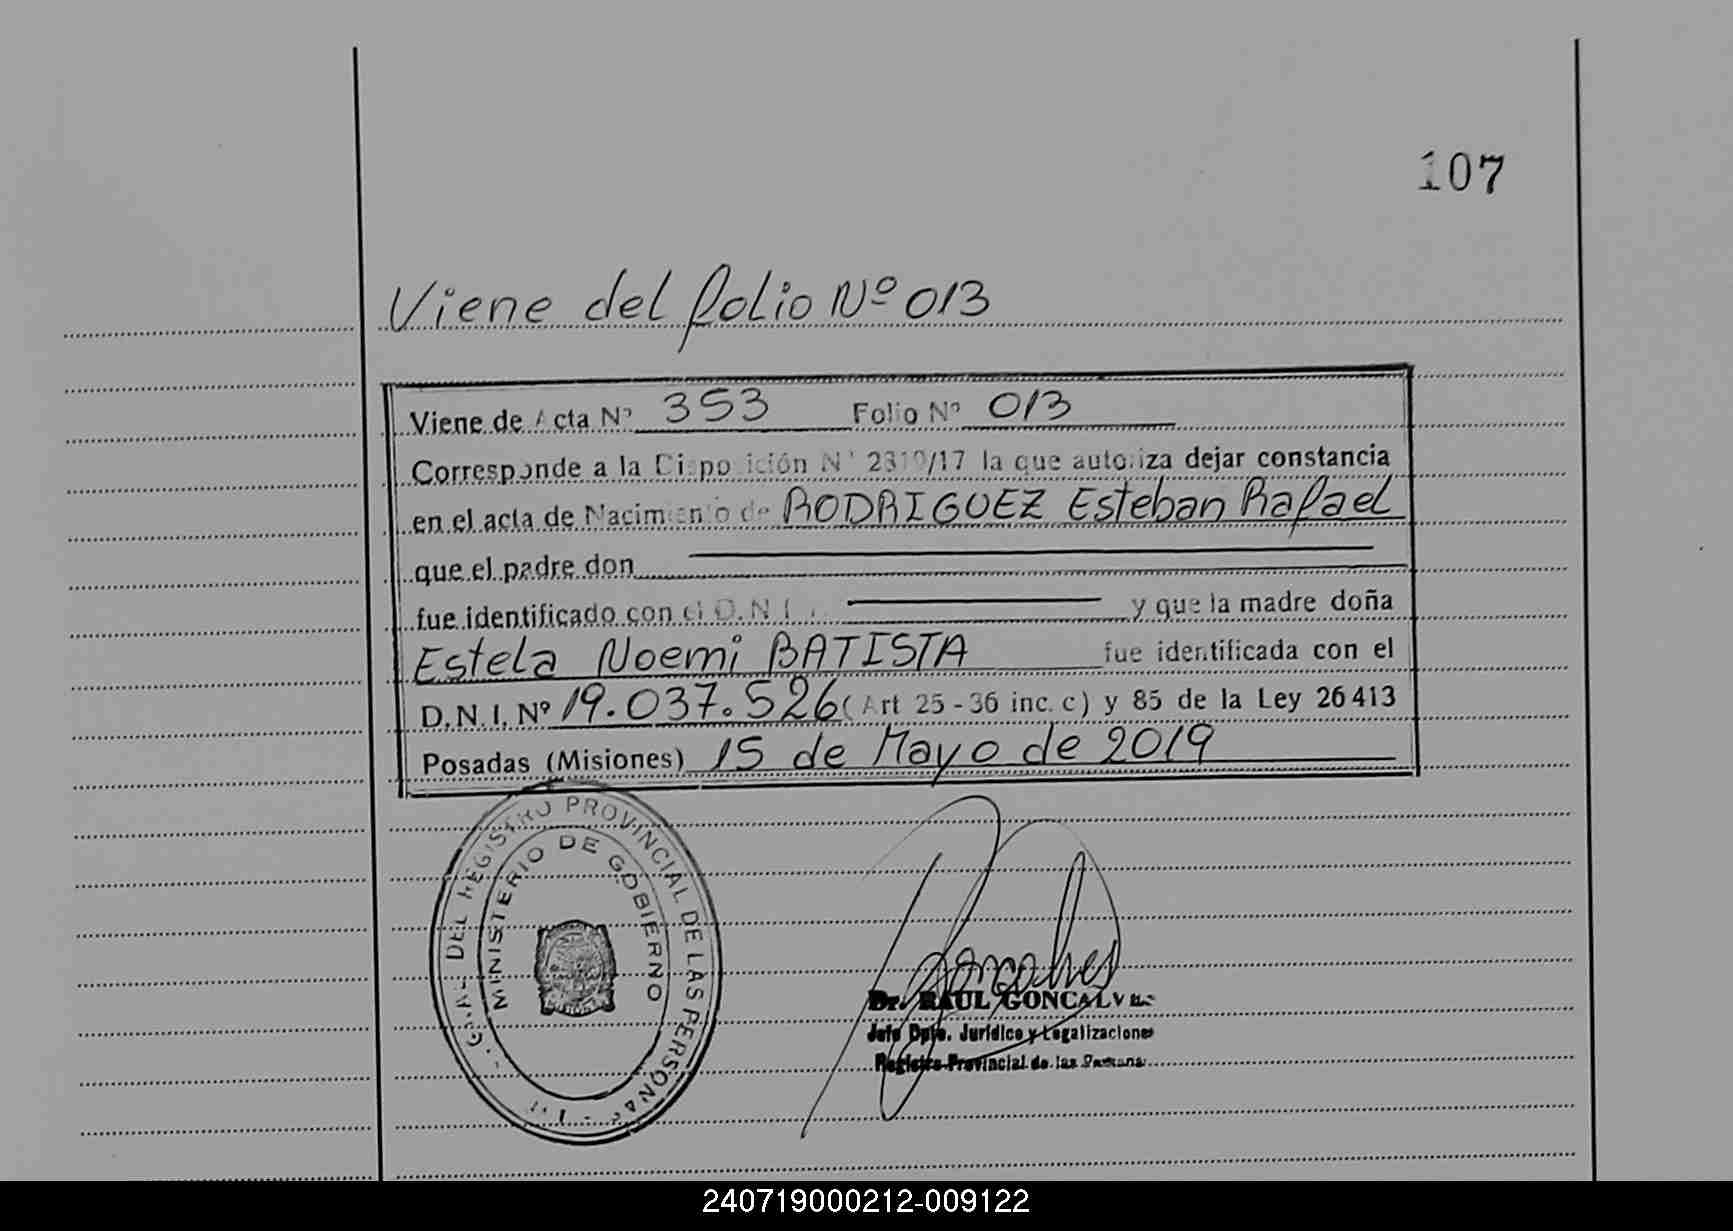 107
Viene del folio Nº 013
Viene de Acta Nº 353 Folio Nº 013
Corresponde a la Disposición Nº 2310/17 la que autoriza dejar constancia
en el acta de Nacimiento de RODRIGUEZ Esteban Rafael
que el padre don
fue identificado con el D.N.I. y que la madre doña
Estela Noemi BATISTA fue identificada con el
D.N.I. Nº 19.037.526 (Art 25-36 inc. c) y 85 de la Ley 26413
Posadas (Misiones) 15 de Mayo de 2019
GRAL DEL REGISTRO PROVINCIAL DE LAS PERSONAS
MINISTERIO DE GOBIERNO
Dr. RAUL GONCALVES
Jefe Dpto. Jurídico y Legalizaciones
Registro Provincial de las Personas
240719000212-009122